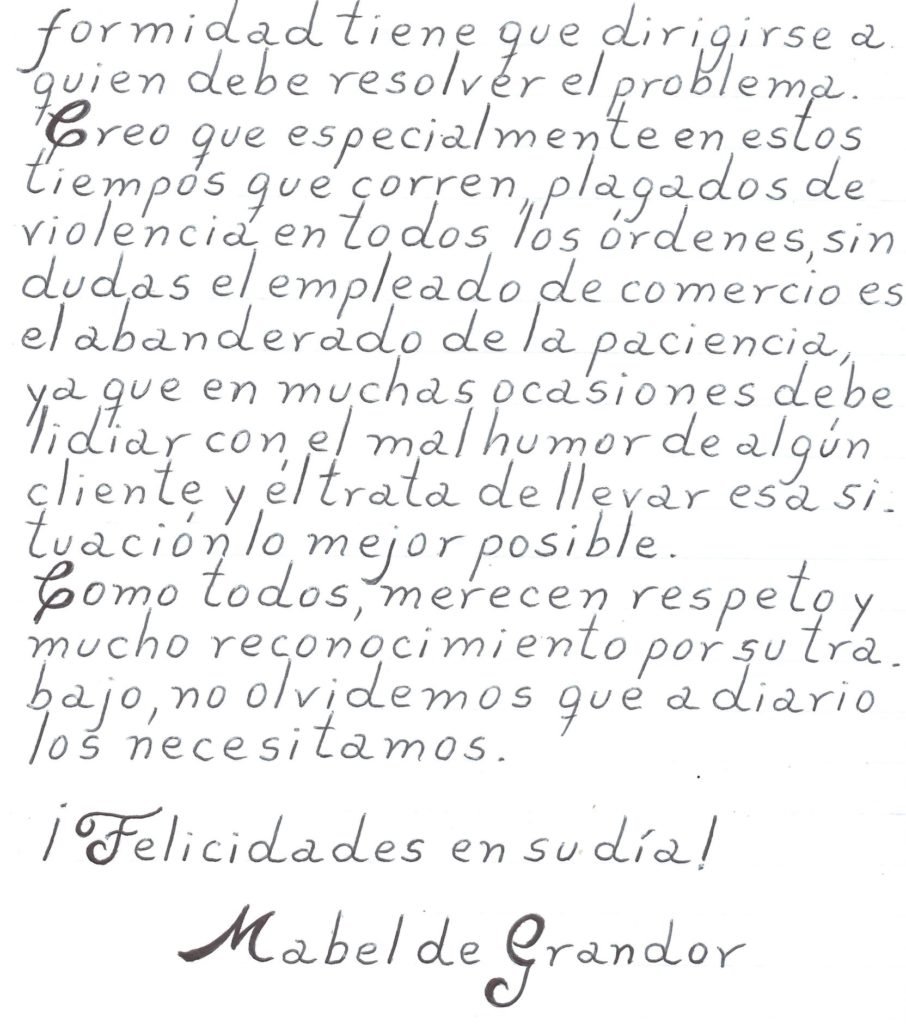 formidad tiene que dirigirse a
quien debe resolver el problema.
Creo que especialmente en estos
tiempos que corren, plagados de
violencia en todos los órdenes, sin
dudas el empleado de comercio es
el abanderado de la paciencia,
ya que en muchas ocasiones debe
lidiar con el mal humor de algún
cliente y él trata de llevar esa si-
tuación lo mejor posible.
Como todos, merecen respeto y
mucho reconocimiento por su tra-
bajo, no olvidemos que a diario
los necesitamos.
¡Felicidades en su día!
Mabel de Grandor